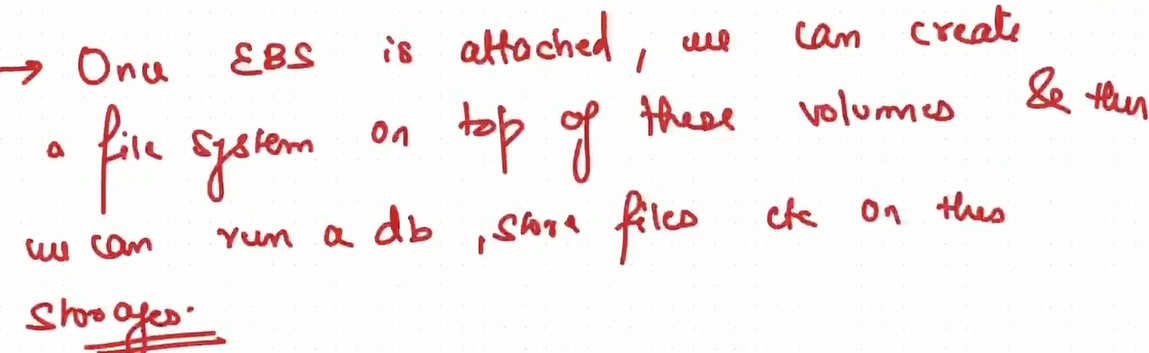 → Once EBS is attached, we can create
a file system on top of these volumes & then
we can run a db, store files etc on this
storages.